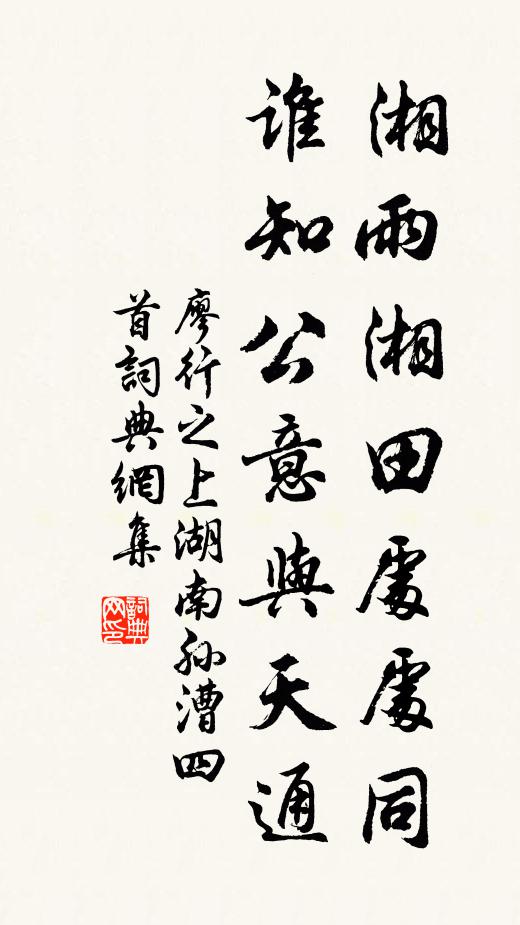 湘雨湘田處處同
誰知公意與天通
廖行之上湖南孙漕四
首詞典網集
詞典
网印